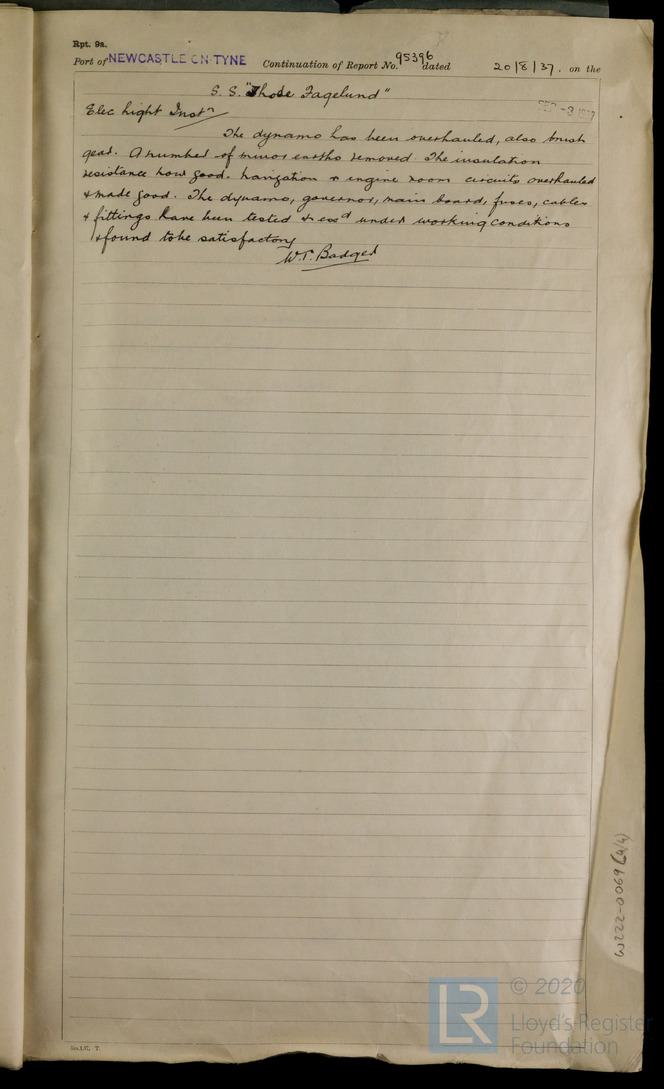 Rpt. 9a.
Port of NEWCASTLE ON TYNE Continuation of Report No. 95396 dated 20/8/37. on the
S. S. "Thode Fagelund"
SEP -3 1937
Elec Light Instn
The dynamo has been overhauled, also brush
gear. A number of minor earths removed. The insulation
resistance now good. Navigation & engine room circuits overhauled
& made good. The dynamo, governor, main board, fuses, cables
& fittings have been tested & exd under working conditions
& found to be satisfactory
W.T. Badger
W222-0069 (4/4)
© 2020
LR
Lloyd's Register
Foundation